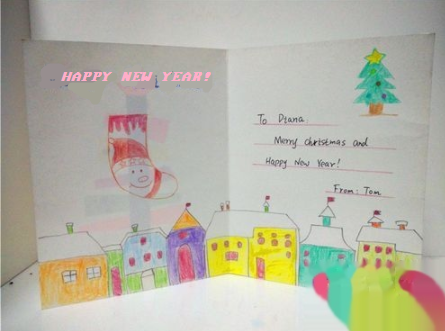 HAPPY NEW YEAR!
To Diana
Merry christmas and
Happy New Year!
From: Tom